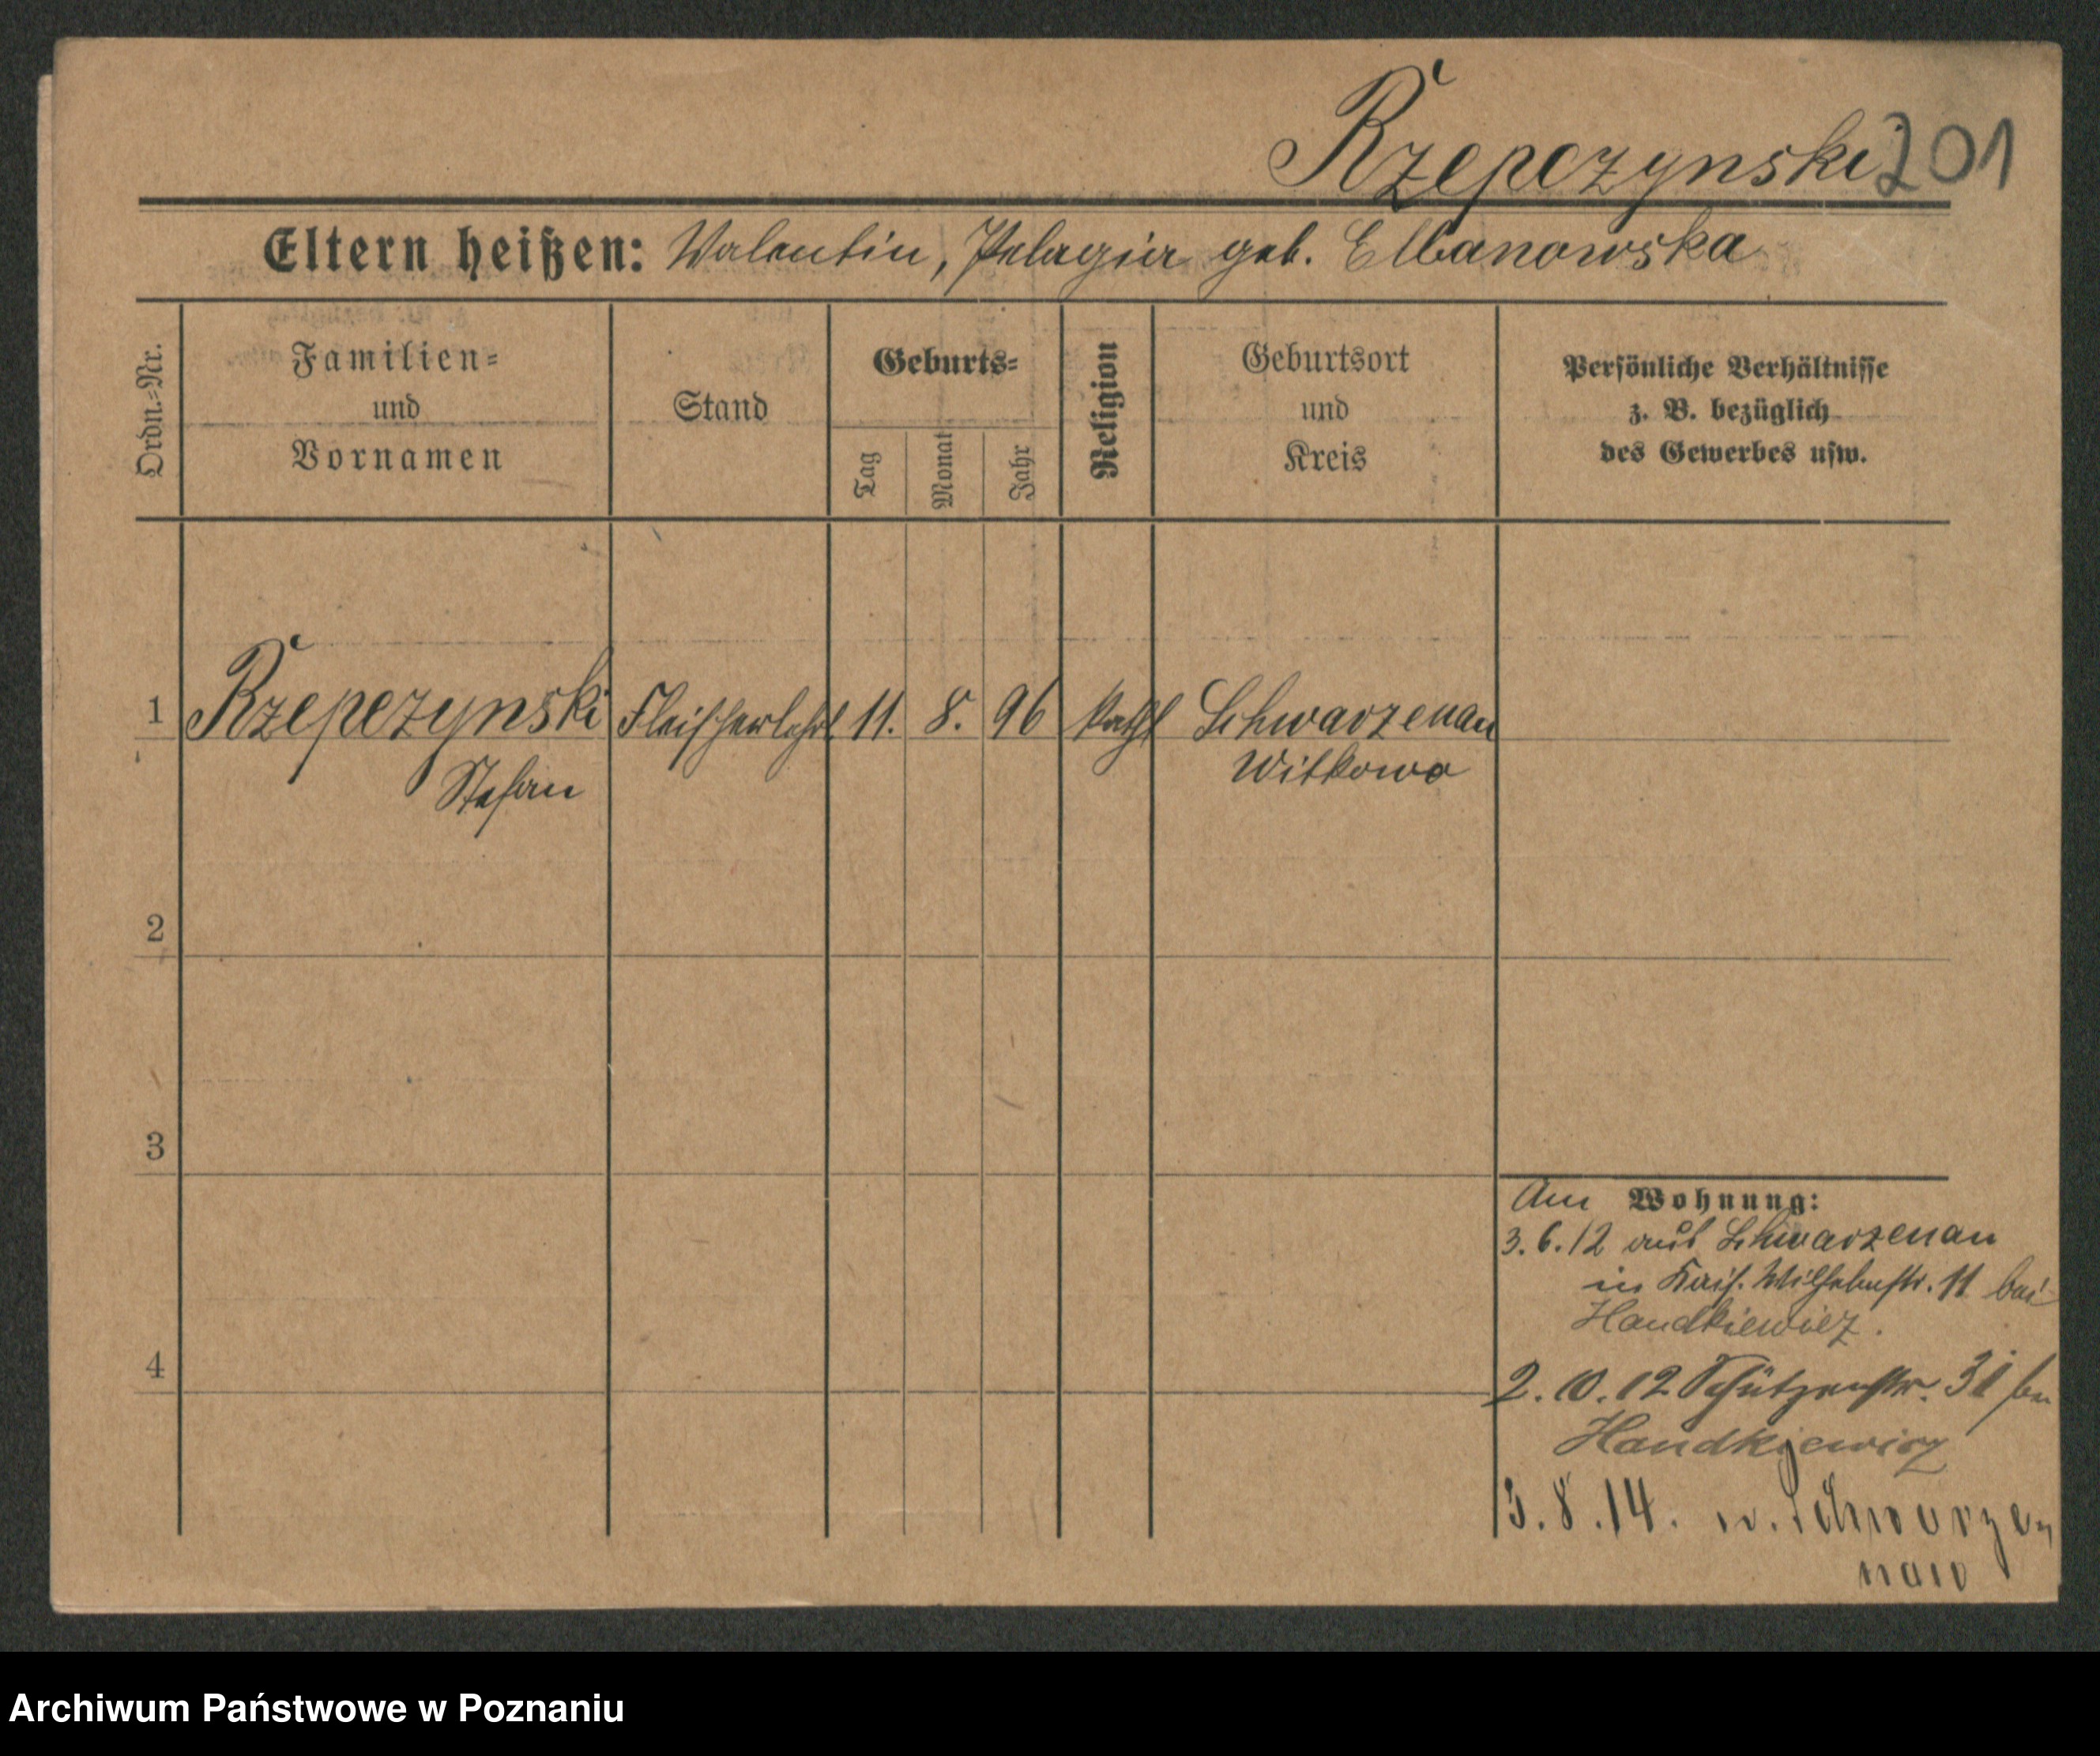 Rzepczynski 201
Eltern heißen: Valentin, Pelagia geb. Elbanowska
Ordn.-Nr.
Familien-
und
Vornamen
Stand
Geburts-
Tag
Monat
Jahr
Religion
Geburtsort
und
Kreis
Persönliche Verhältnisse
z. B. bezüglich
des Gewerbes usw.
1 Rzepczynski Fleischerlehrl 11. 8. 96 kathl Schwarzenau
Stefan Witkowo
2
3
4
Am Wohnung:
3.6.12 aus Schwarzenau
in Kais. Wilhelmstr. 11 bei
Handkiewicz.
2.10.12 Schützenstr. 31 bei
Handkiewicz
3.8.14. n. Schwarzen
nau
Archiwum Państwowe w Poznaniu